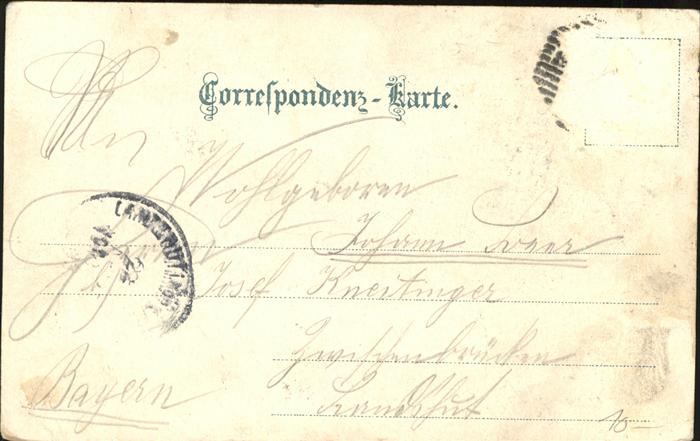 Correspondenz-Karte.
An
Wohlgeboren
Johann
Josef Kneitinger
Zwischenbrücken
Landshut
Bayern
LANDSHUT
10